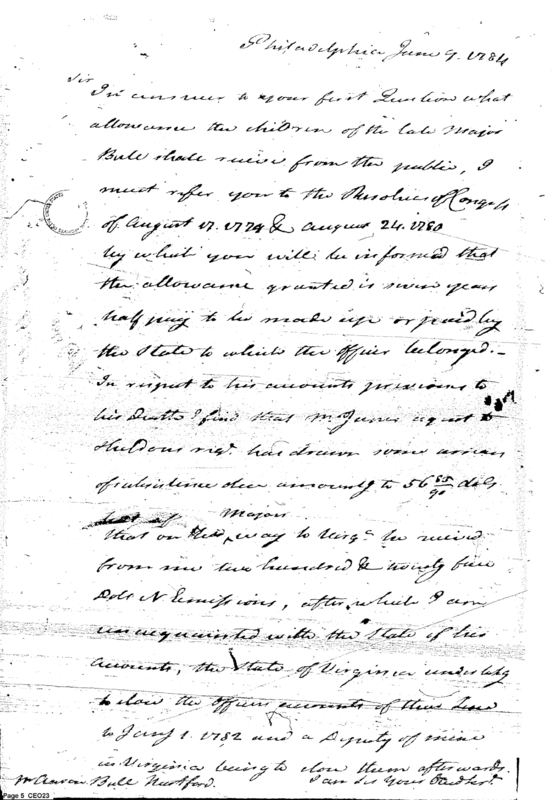 Philadelphia June 9. 1784
Sir
In answer to your first Question what
allowance the children of the late Major
Bull shall receive from the public, I
must refer you to the Resolves of Congress
of August 17. 1779 & August 24. 1780
by which you will be informed that
the allowance granted is seven years
half pay to be made up or paid by
the State to which the officer belonged.—
In respect to his accounts previous to
his Death I find that Mr Jones agent to
Sheldons regt. has drawn some arrears
of subsistence due amountg to 56 85/90 dols
Majors
that on the way to Virga he received
from me two hundred & twenty five
Dols N Emissions, after which I am
unacquainted with the State of his
accounts, the State of Virginia undertakg
to close the officers accounts of their Line
to Jany 1. 1782 and a Deputy of mine
in Virginia being to close them afterwards.
I am Sir Your
Mr Aaron Bull Hartford.
Page 5 CEO23